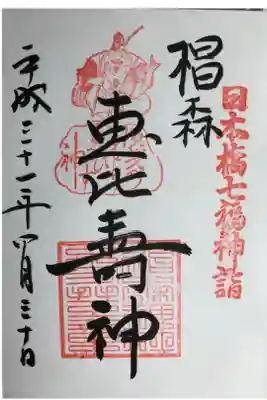 日本橋七福神詣
椙森
恵比壽神
平成三十一年四月三十日